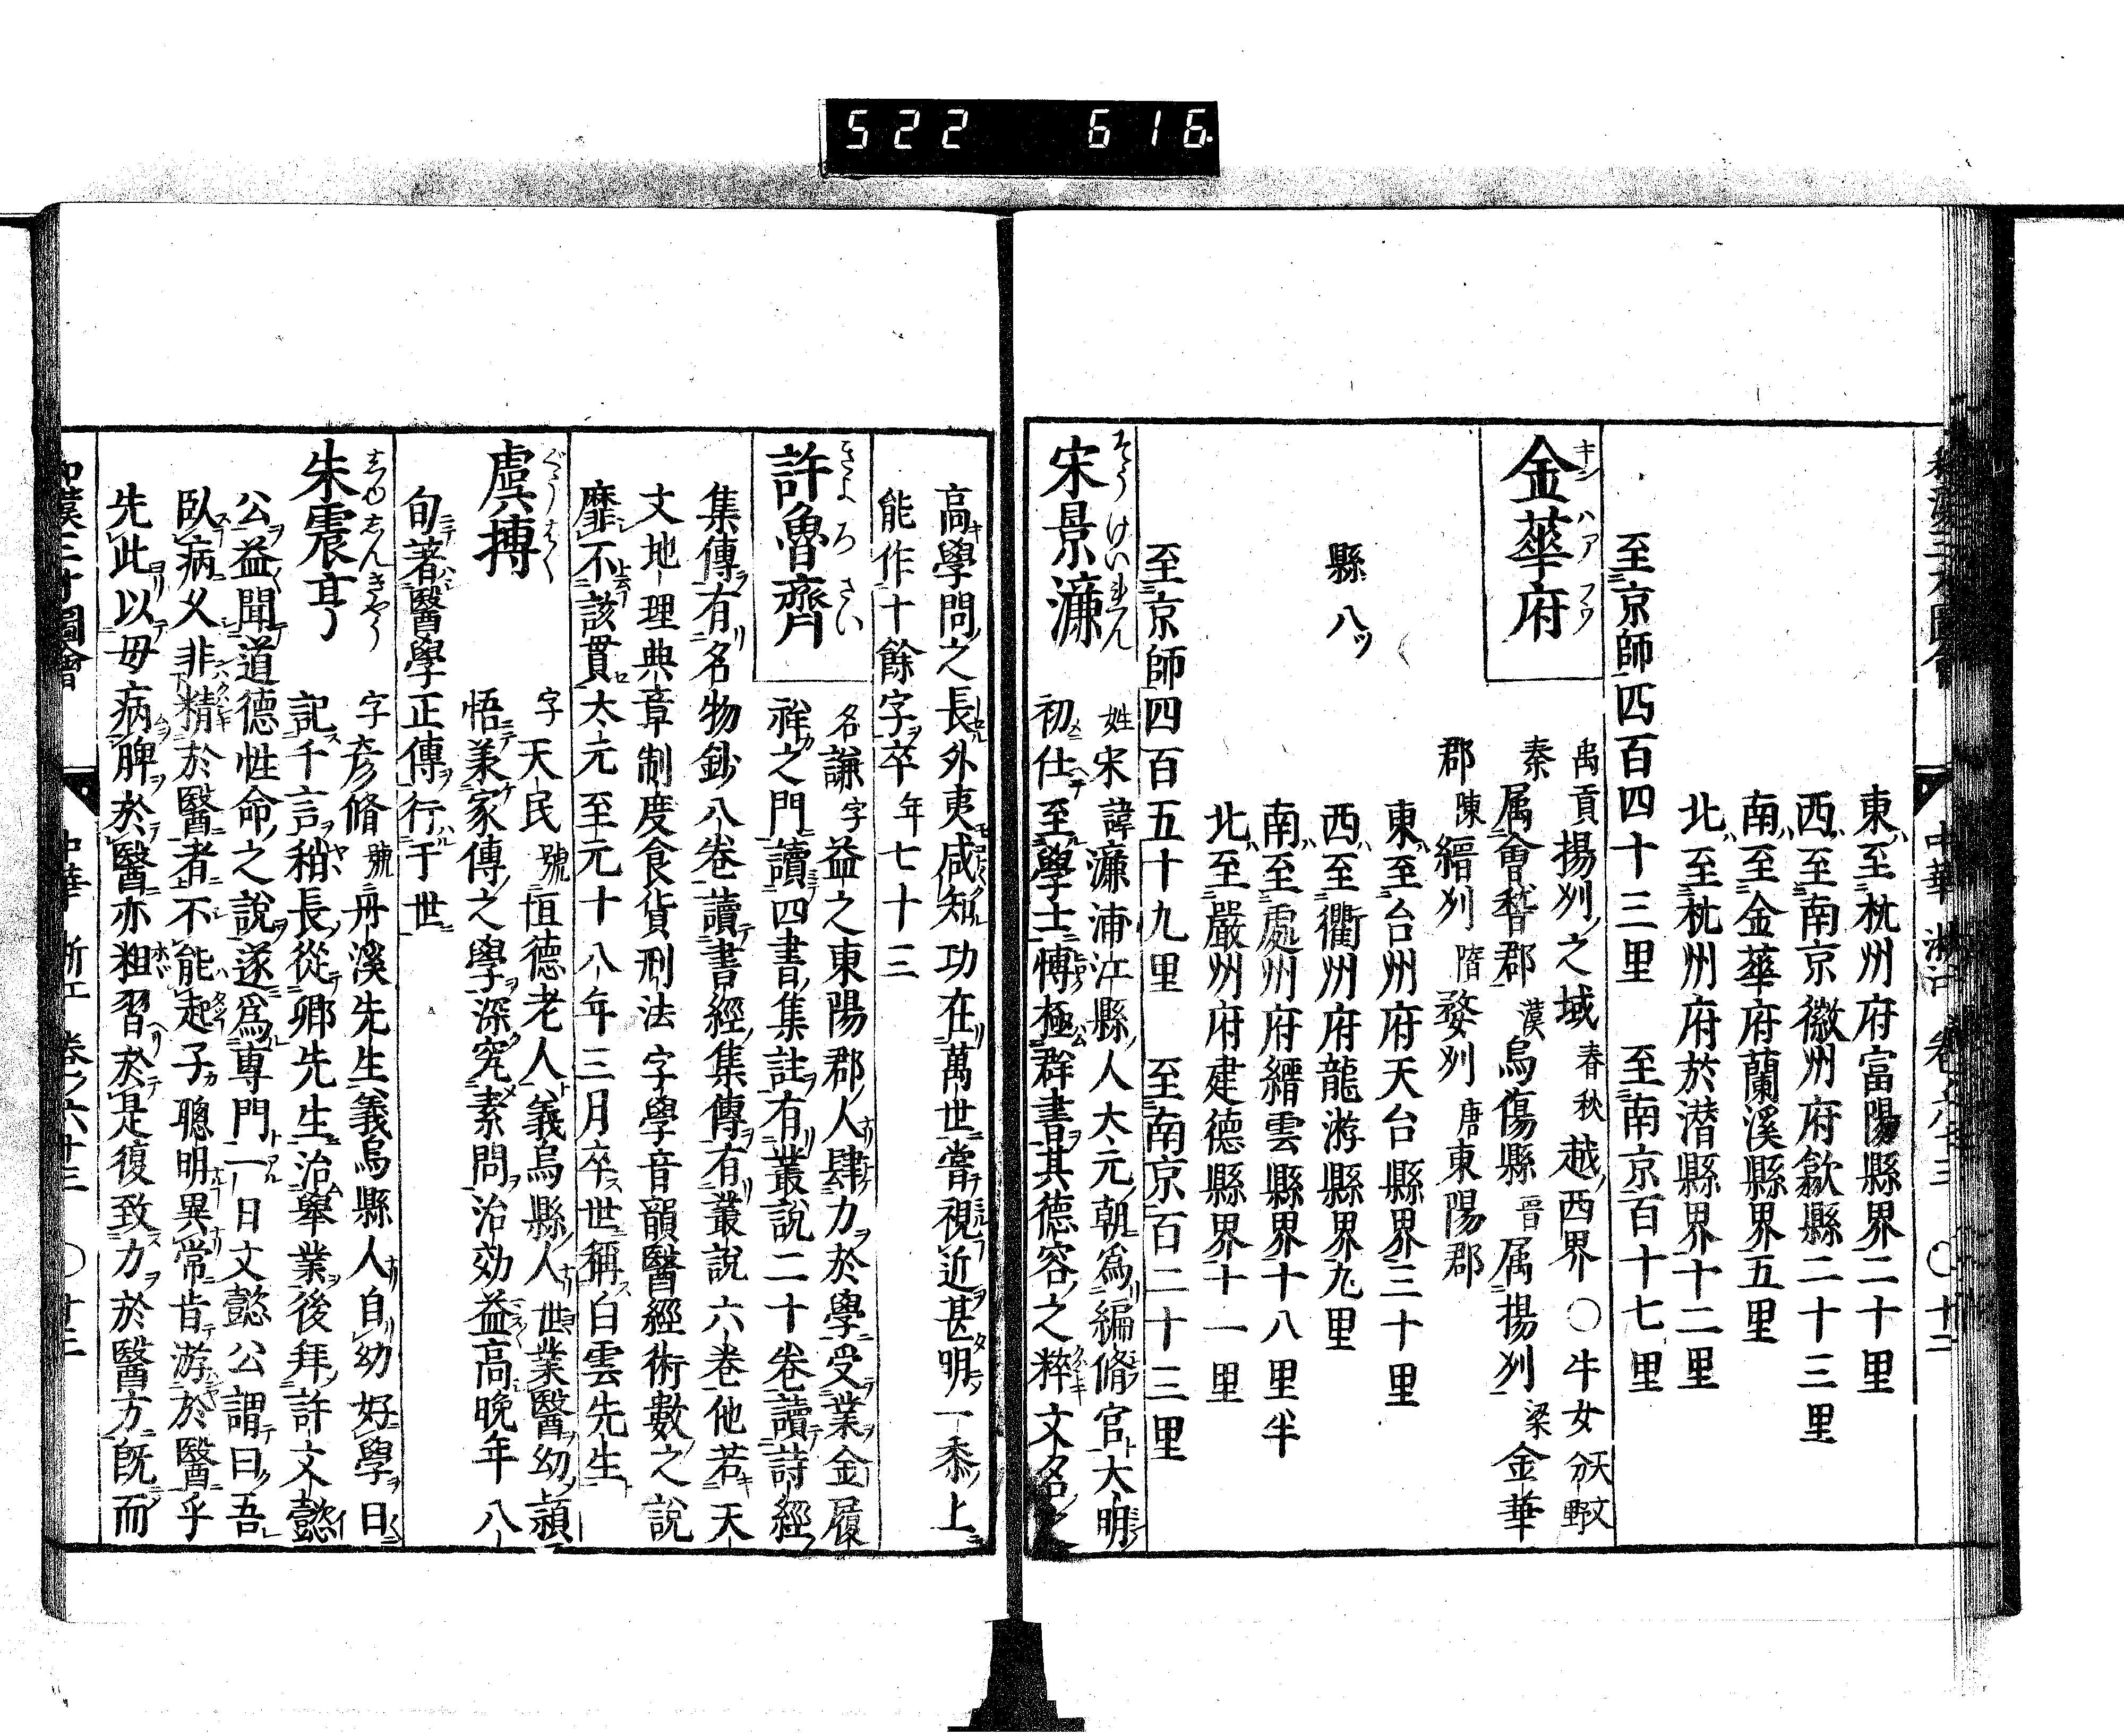 522 616.
中華 浙江 卷之六十三 〇十二
東ハ至杭州府富陽縣界二十里
西ハ至南京徽州府歙縣二十三里
南ハ至金華府蘭溪縣界五里
北ハ至杭州府於潜縣界十二里
至京師四百四十三里 至南京百十七里
金華府 キンハアフウ
禹貢揚州之域 春秋越西界〇牛女分野 天文
秦属會稽郡 漢烏傷縣 晉属揚州 梁金華
郡 陳縉州 隋婺州 唐東陽郡
縣八ツ
東ハ至台州府天台縣界三十里
西ハ至衢州府龍游縣界九里
南ハ至處州府縉雲縣界十八里半
北ハ至嚴州府建德縣界十一里
至京師四百五十九里 至南京百二十三里
宋景濂 そうけいれん
姓宋諱濂浦江縣人大元朝為編脩官大明
初仕至學士博極群書其德容之粹文名之
高學問之長外夷咸知功在萬世嘗視近甚明一黍上
能作十餘字卒年七十三
許魯齊 きよろさい
名謙字益之東陽郡人肆力於學受業金履
祥之門讀四書集註有叢說二十卷讀詩經
集傳有名物鈔八卷讀書經集傳有叢說六卷他若天
文地理典章制度食貨刑法字學音韻醫經術數之說
靡不該貫大元至元十八年三月卒世稱白雲先生
虞摶 ぐうはく
字天民號恒德老人義烏縣人世業醫幼頴
悟兼家傳之學深究素問治効益高晩年八
旬著醫學正傳行于世
朱震亨 しゆしんきやう
字彦脩號丹溪先生義烏縣人自幼好學日
記千言稍長從鄉先生治舉業後拜許文懿
公益聞道德性命之說遂為專門一日文懿公謂曰吾
臥病久非精於醫者不能起子聰明異常肯游於醫乎
先此以母病脾於醫亦粗習於是復致力於醫方既而
和漢三才圖會 中華 浙江 卷之六十三 〇十三